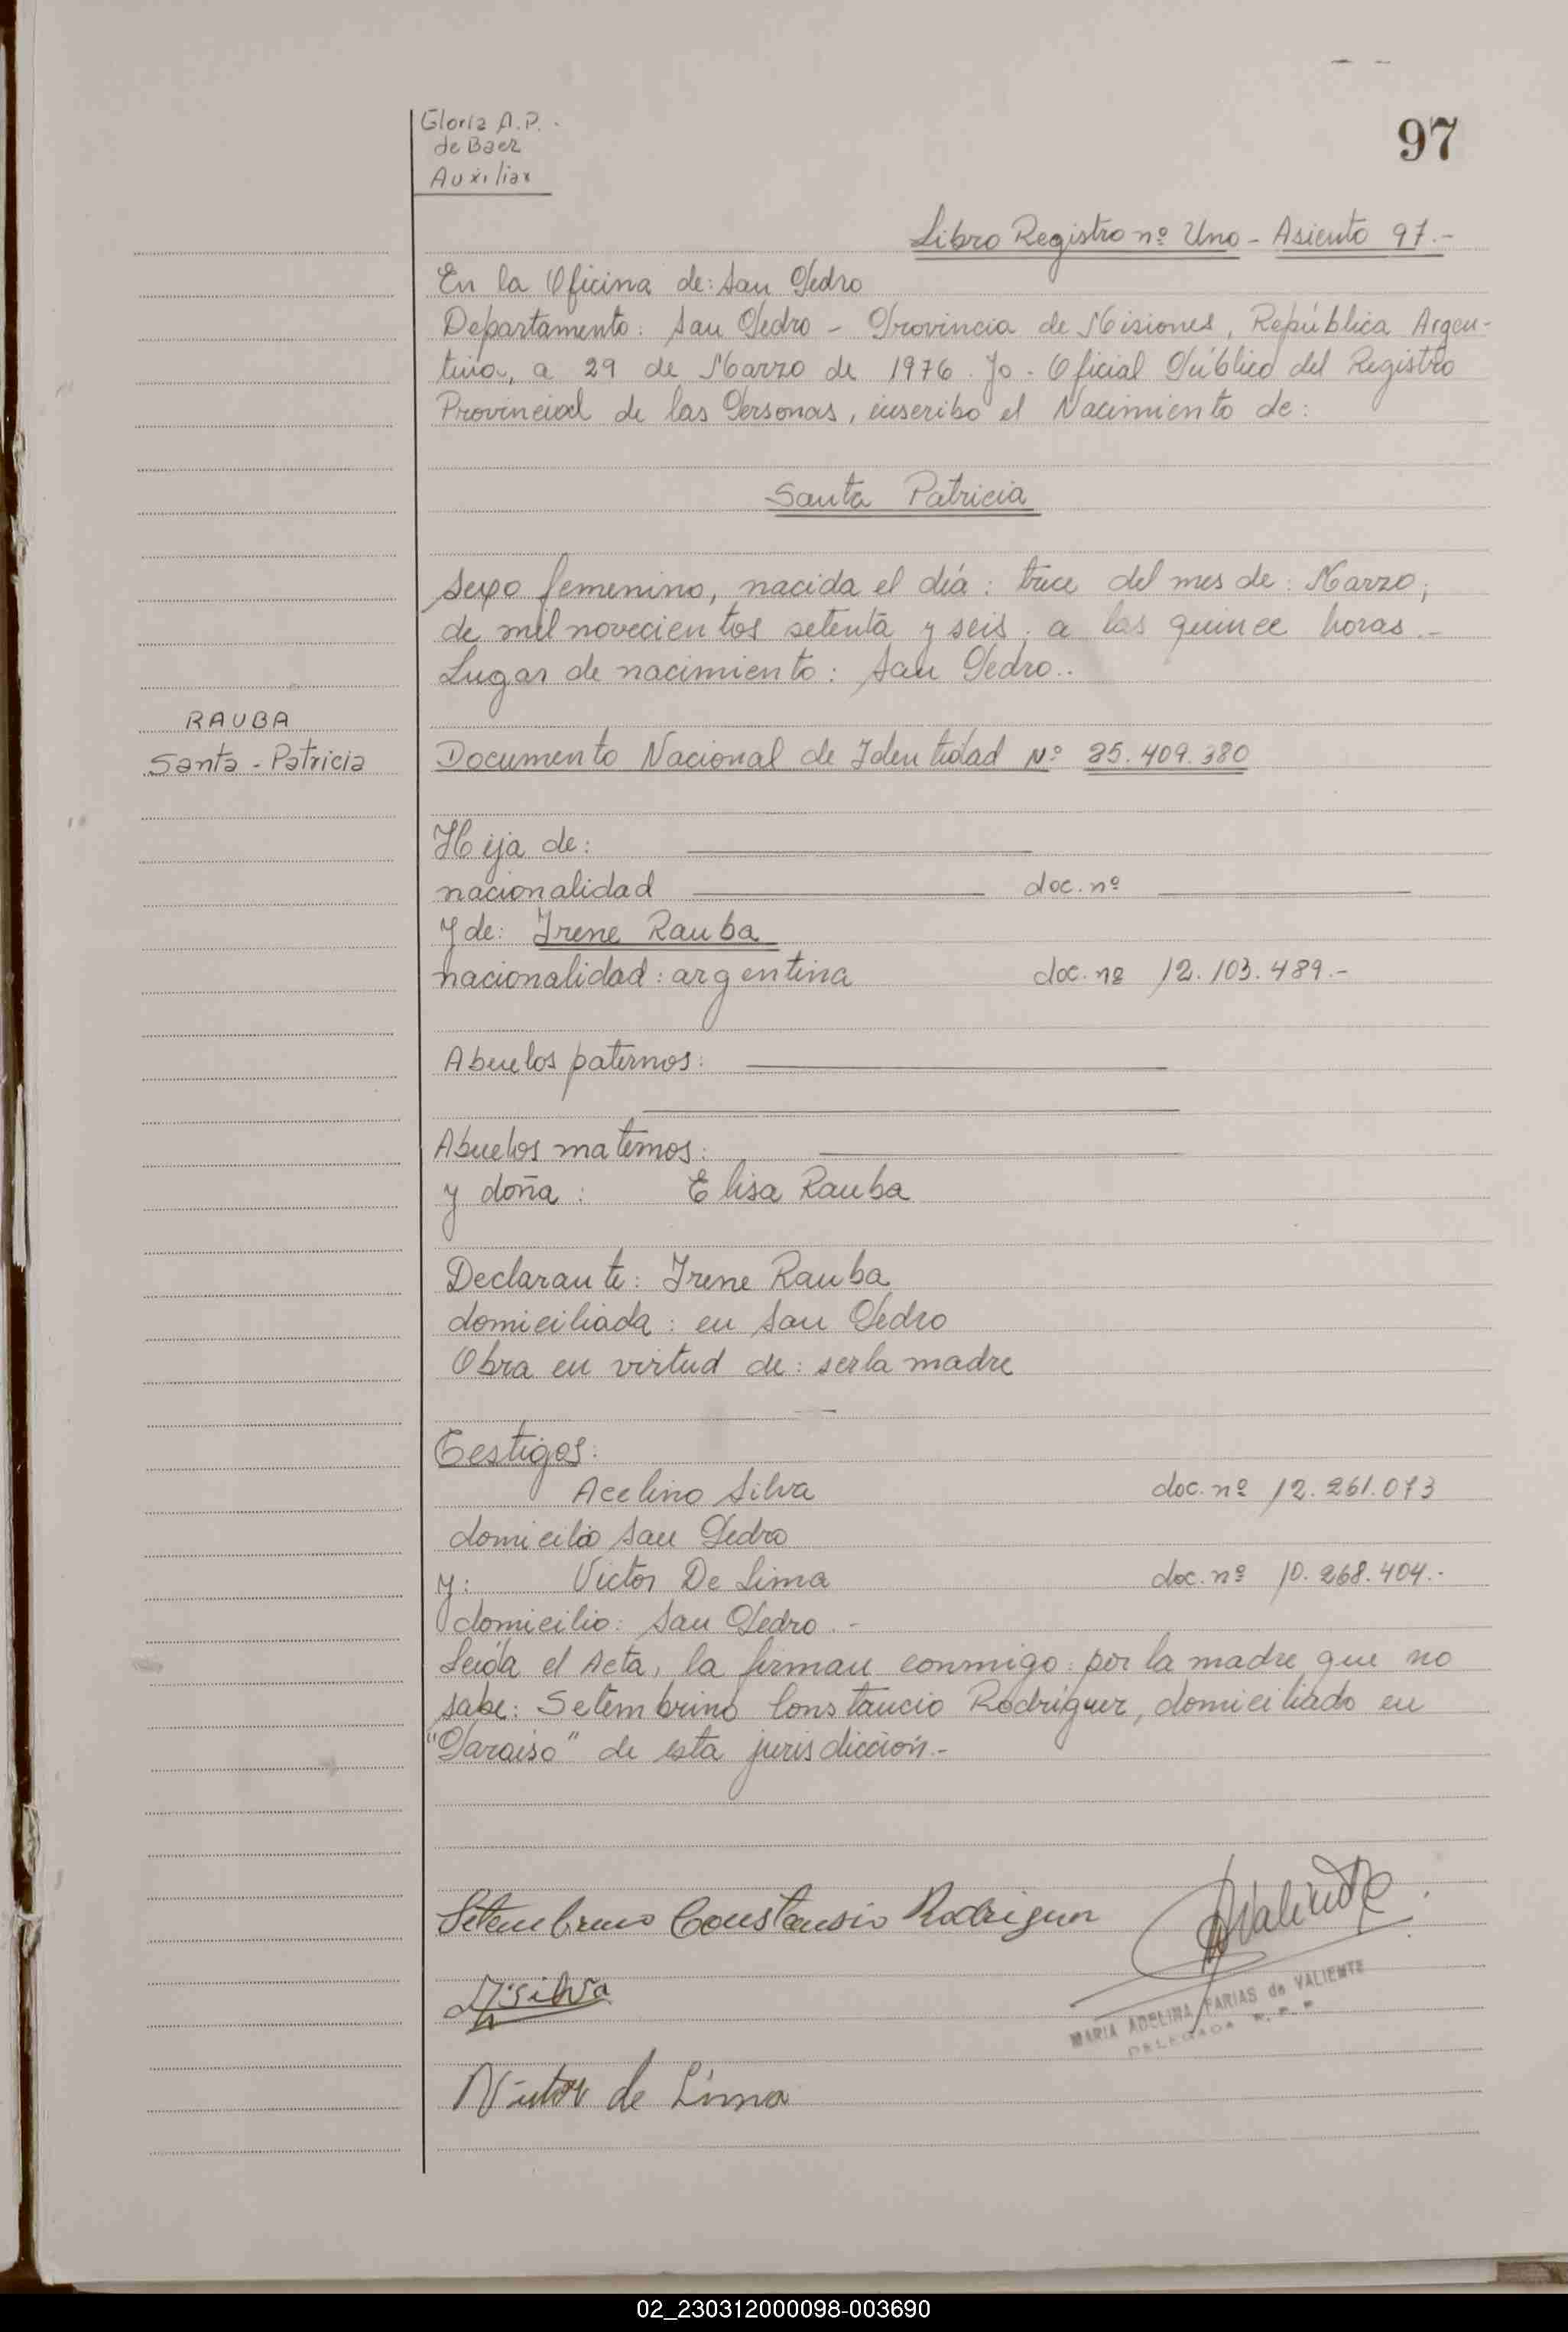 Gloria A.P.
de Baez
Auxiliar
97
Libro Registro nº Uno - Asiento 97.-
En la Oficina de: San Pedro
Departamento: San Pedro - Provincia de Misiones, República Argen-
tina, a 29 de Marzo de 1976. Yo - Oficial Público del Registro
Provincial de las Personas, inscribo el Nacimiento de:
Santa Patricia
Sexo femenino, nacida el día: trece del mes de: Marzo,
de mil novecientos setenta y seis, a las quince horas.-
Lugar de nacimiento: San Pedro..
RAUBA
Santa - Patricia
Documento Nacional de Identidad Nº 25.409.380
Hija de:
nacionalidad doc. nº
Y de: Irene Rauba
nacionalidad: argentina doc. nº 12.103.489.-
Abuelos paternos:
Abuelos maternos:
y doña: Elisa Rauba
Declarante: Irene Rauba
domiciliada: en San Pedro
Obra en virtud de: ser la madre
Testigos:
Acelino Silva doc. nº 12.261.073
domicilio San Pedro
y: Victor De Lima doc. nº 10.268.404.-
domicilio: San Pedro.-
Leída el Acta, la firman conmigo: por la madre que no
sabe: Setembrino Constancio Rodriguez, domiciliado en
"Paraiso" de esta jurisdicción.-
Setembrino Constansio Rodriguez
Valiente
A. Silva
MARIA ADELINA FARIAS de VALIENTE
DELEGADA R. P. P.
Victor de Lima
02_230312000098-003690